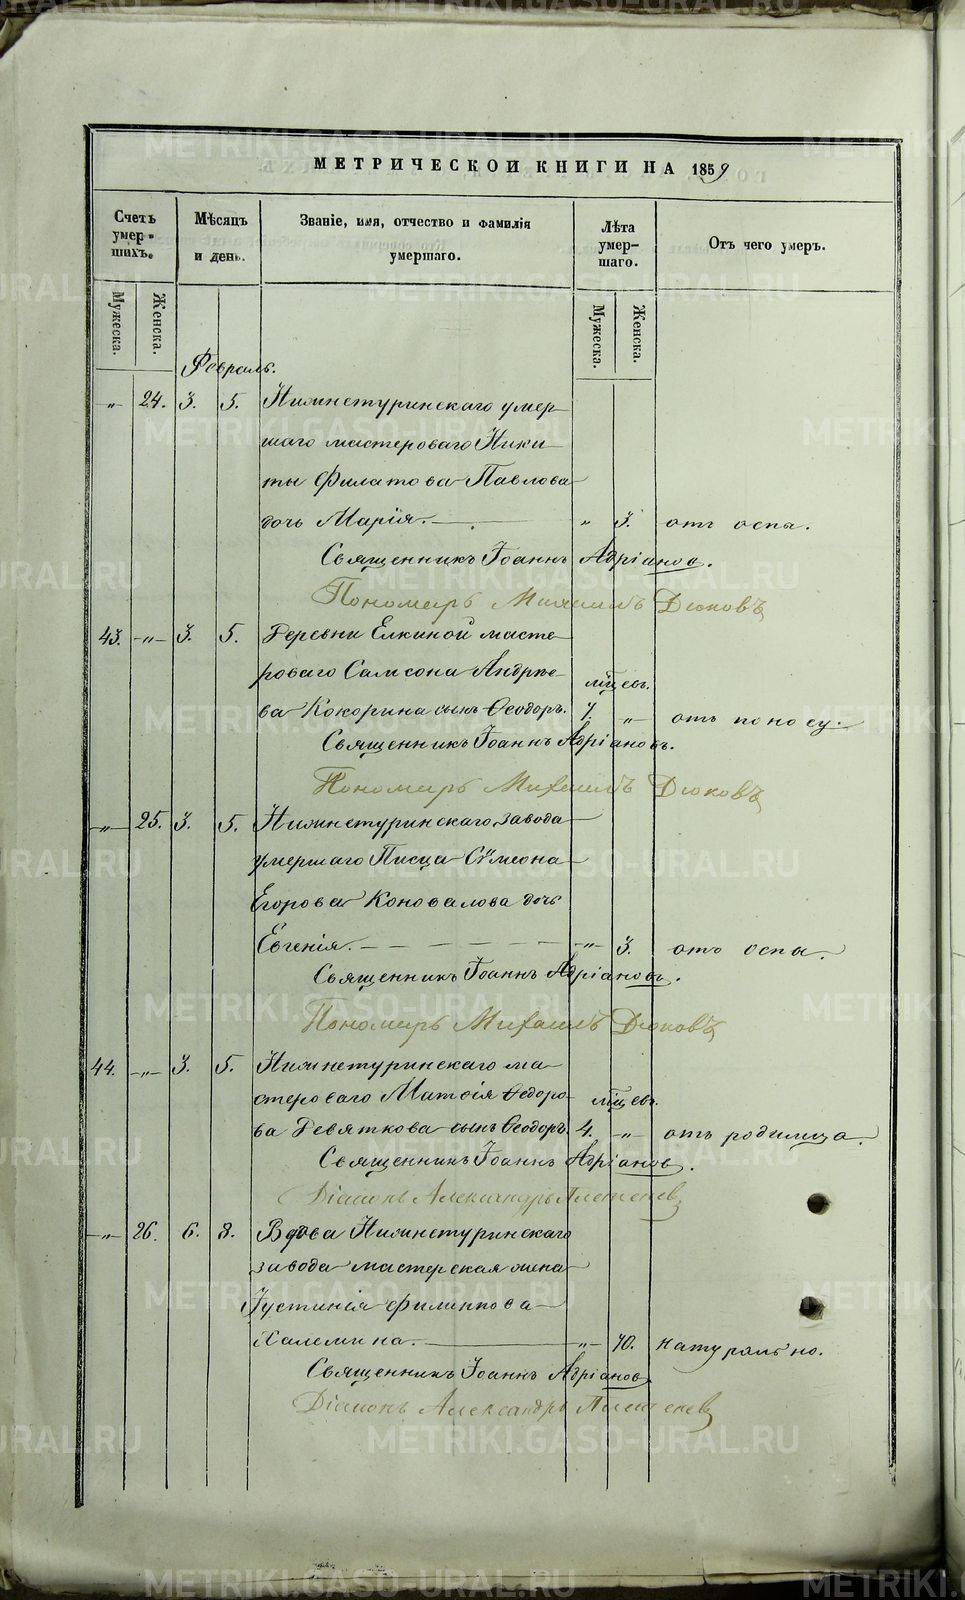 МЕТРИЧЕСКОЙ КНИГИ НА 1859
Счетъ умер-шихъ.
Мѣсяцъ и день.
Званіе, имя, отчество и фамилія умершаго.
Лѣта умер-шаго.
Отъ чего умеръ.
Мужеска. Женска. Мужеска. Женска.
Февраль.
-„- 24. 3. 5. Нижнетуринскаго умер-
шаго мастероваго Ники-
ты Филатова Павлова
дочь Марія. „ 3. отъ оспы.
Священникъ Іоаннъ Адріановъ.
Пономарь Михаилъ Дюковъ
43. -„- 3. 5. Деревни Елкиной масте-
роваго Самсона Андрѣе- мѣсцевъ.
ва Кокорина сынъ Ѳеодоръ. 7. -„- отъ поносу.
Священникъ Іоаннъ Адріановъ.
Пономарь Михаилъ Дюковъ
-„- 25. 3. 5. Нижнетуринскаго завода
умершаго Писца Сѵмеона
Егорова Коновалова дочь
Евгенія. -„- 3. отъ оспы.
Священникъ Іоаннъ Адріановъ.
Пономарь Михаилъ Дюковъ
44. -„- 3. 5. Нижнетуринскаго ма-
стероваго Матѳія Ѳедоро- мѣсцевъ.
ва Девяткова сынъ Ѳеодоръ. 4. -„- отъ родимца.
Священникъ Іоаннъ Адріановъ.
Діаконъ Александръ
-„- 26. 6. 8. Вдова Нижнетуринскаго
завода мастерская жена
Іустинія Филиппова
Халемина. -„- 70. натурально.
Священникъ Іоаннъ Адріановъ
Діаконъ Александръ
METRIKI.GASO-URAL.RU